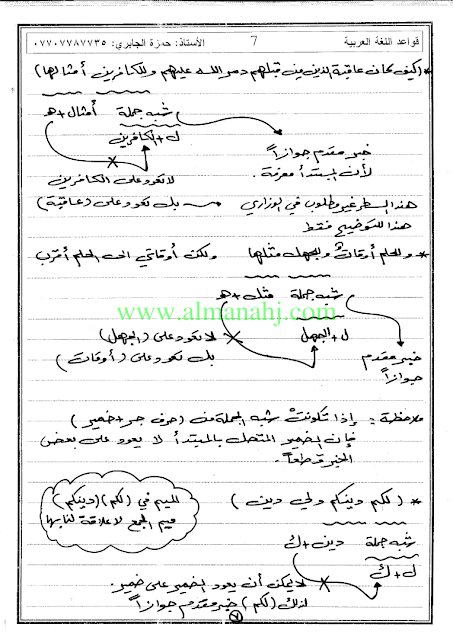 قواعد اللغة العربية
7
الأستاذ: حمزة الجابري: ٠٧٧٠٧٧٨٧٧٣٥
* (كيف كان عاقبة الذين من قبلهم دمر الله عليهم وللكافرين أمثالها)
شبه جملة أمثال + ها
ل + الكافرين
خبر مقدم جوازاً
لأن المبتدأ معرفة.
لا تعود على الكافرين
بل تعود على (عاقبة)
هذا السطر غير مطلوب في الوزاري
هذا للتوضيح فقط
* وللحلم أوقاتٌ وللجهل مثلها ولكن أوقاتي الى الحلم أقرب
شبه جملة مثل + ها
www.almanahj.com
ل + الجهل
لا تعود على (الجهل)
بل تعود على (أوقات)
خبر مقدم
جوازاً
ملاحظة: إذا تكونتْ شبه الجملة من (حرف جر + ضمير)
فإن الضمير المتصل بالمبتدأ لا يعود على بعض
الخبر قطعاً.
* (لكم دينكم ولي دين)
الميم في (لكم) (دينكم)
ميم الجمع لا علاقة لنا بها
شبه جملة دين + ك
ل + ك
لا يمكن أن يعود الضمير على ضمير.
لذلك (لكم) خبر مقدم جوازاً
٧